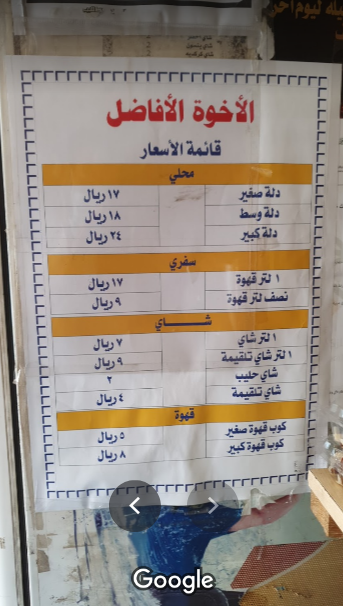 الأخوة الأفاضل
قائمة الأسعار
محلي
دلة صغير ١٧ ريال
دلة وسط ١٨ ريال
دلة كبير ٢٤ ريال
سفري
١ لتر قهوة ١٧ ريال
نصف لتر قهوة ٩ ريال
شـــــــاي
١ لتر شاي ٧ ريال
١ لتر شاي تلقيمة ٩ ريال
شاي حليب ٢
شاي تلقيمة ٤ ريال
قهوة
كوب قهوة صغير ٥ ريال
كوب قهوة كبير ٨ ريال
Google